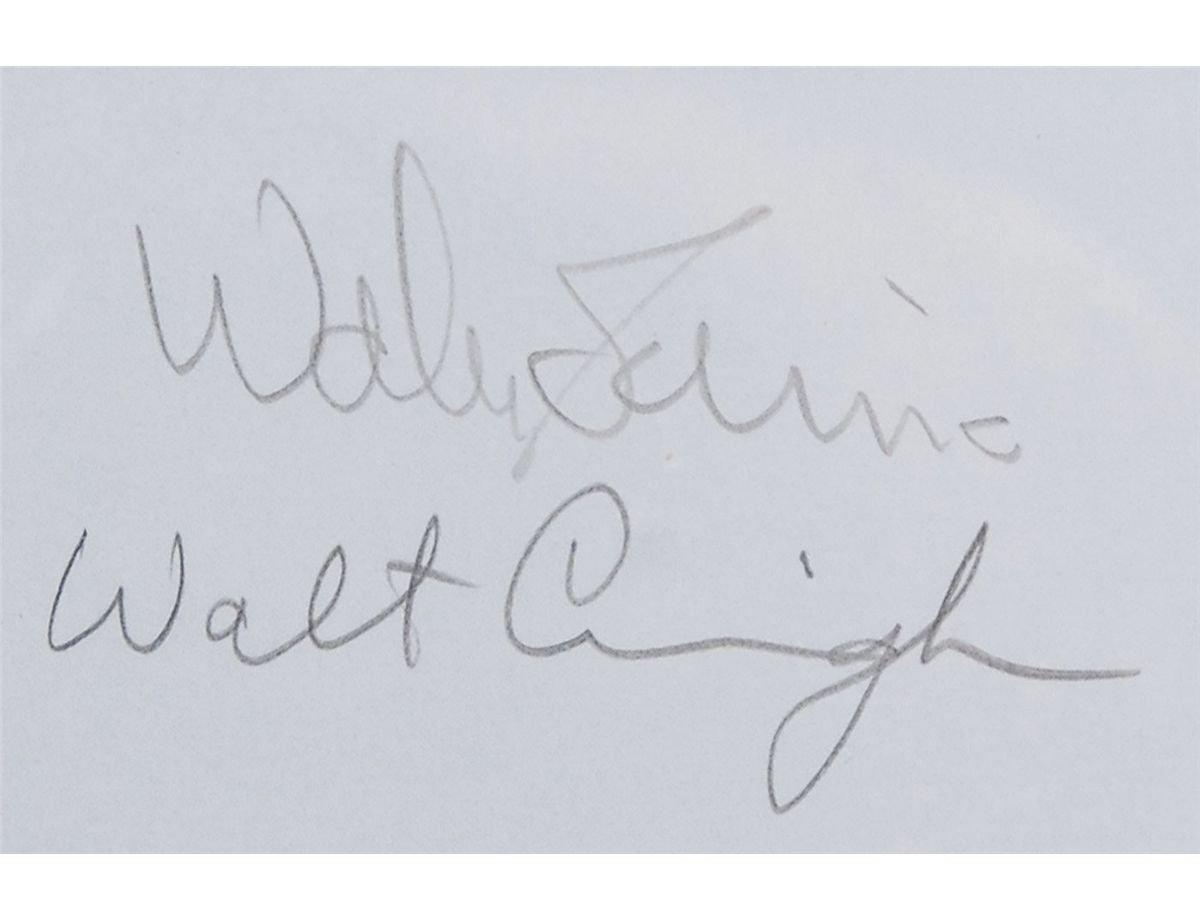 Wally Schirra
Walt Cunningham